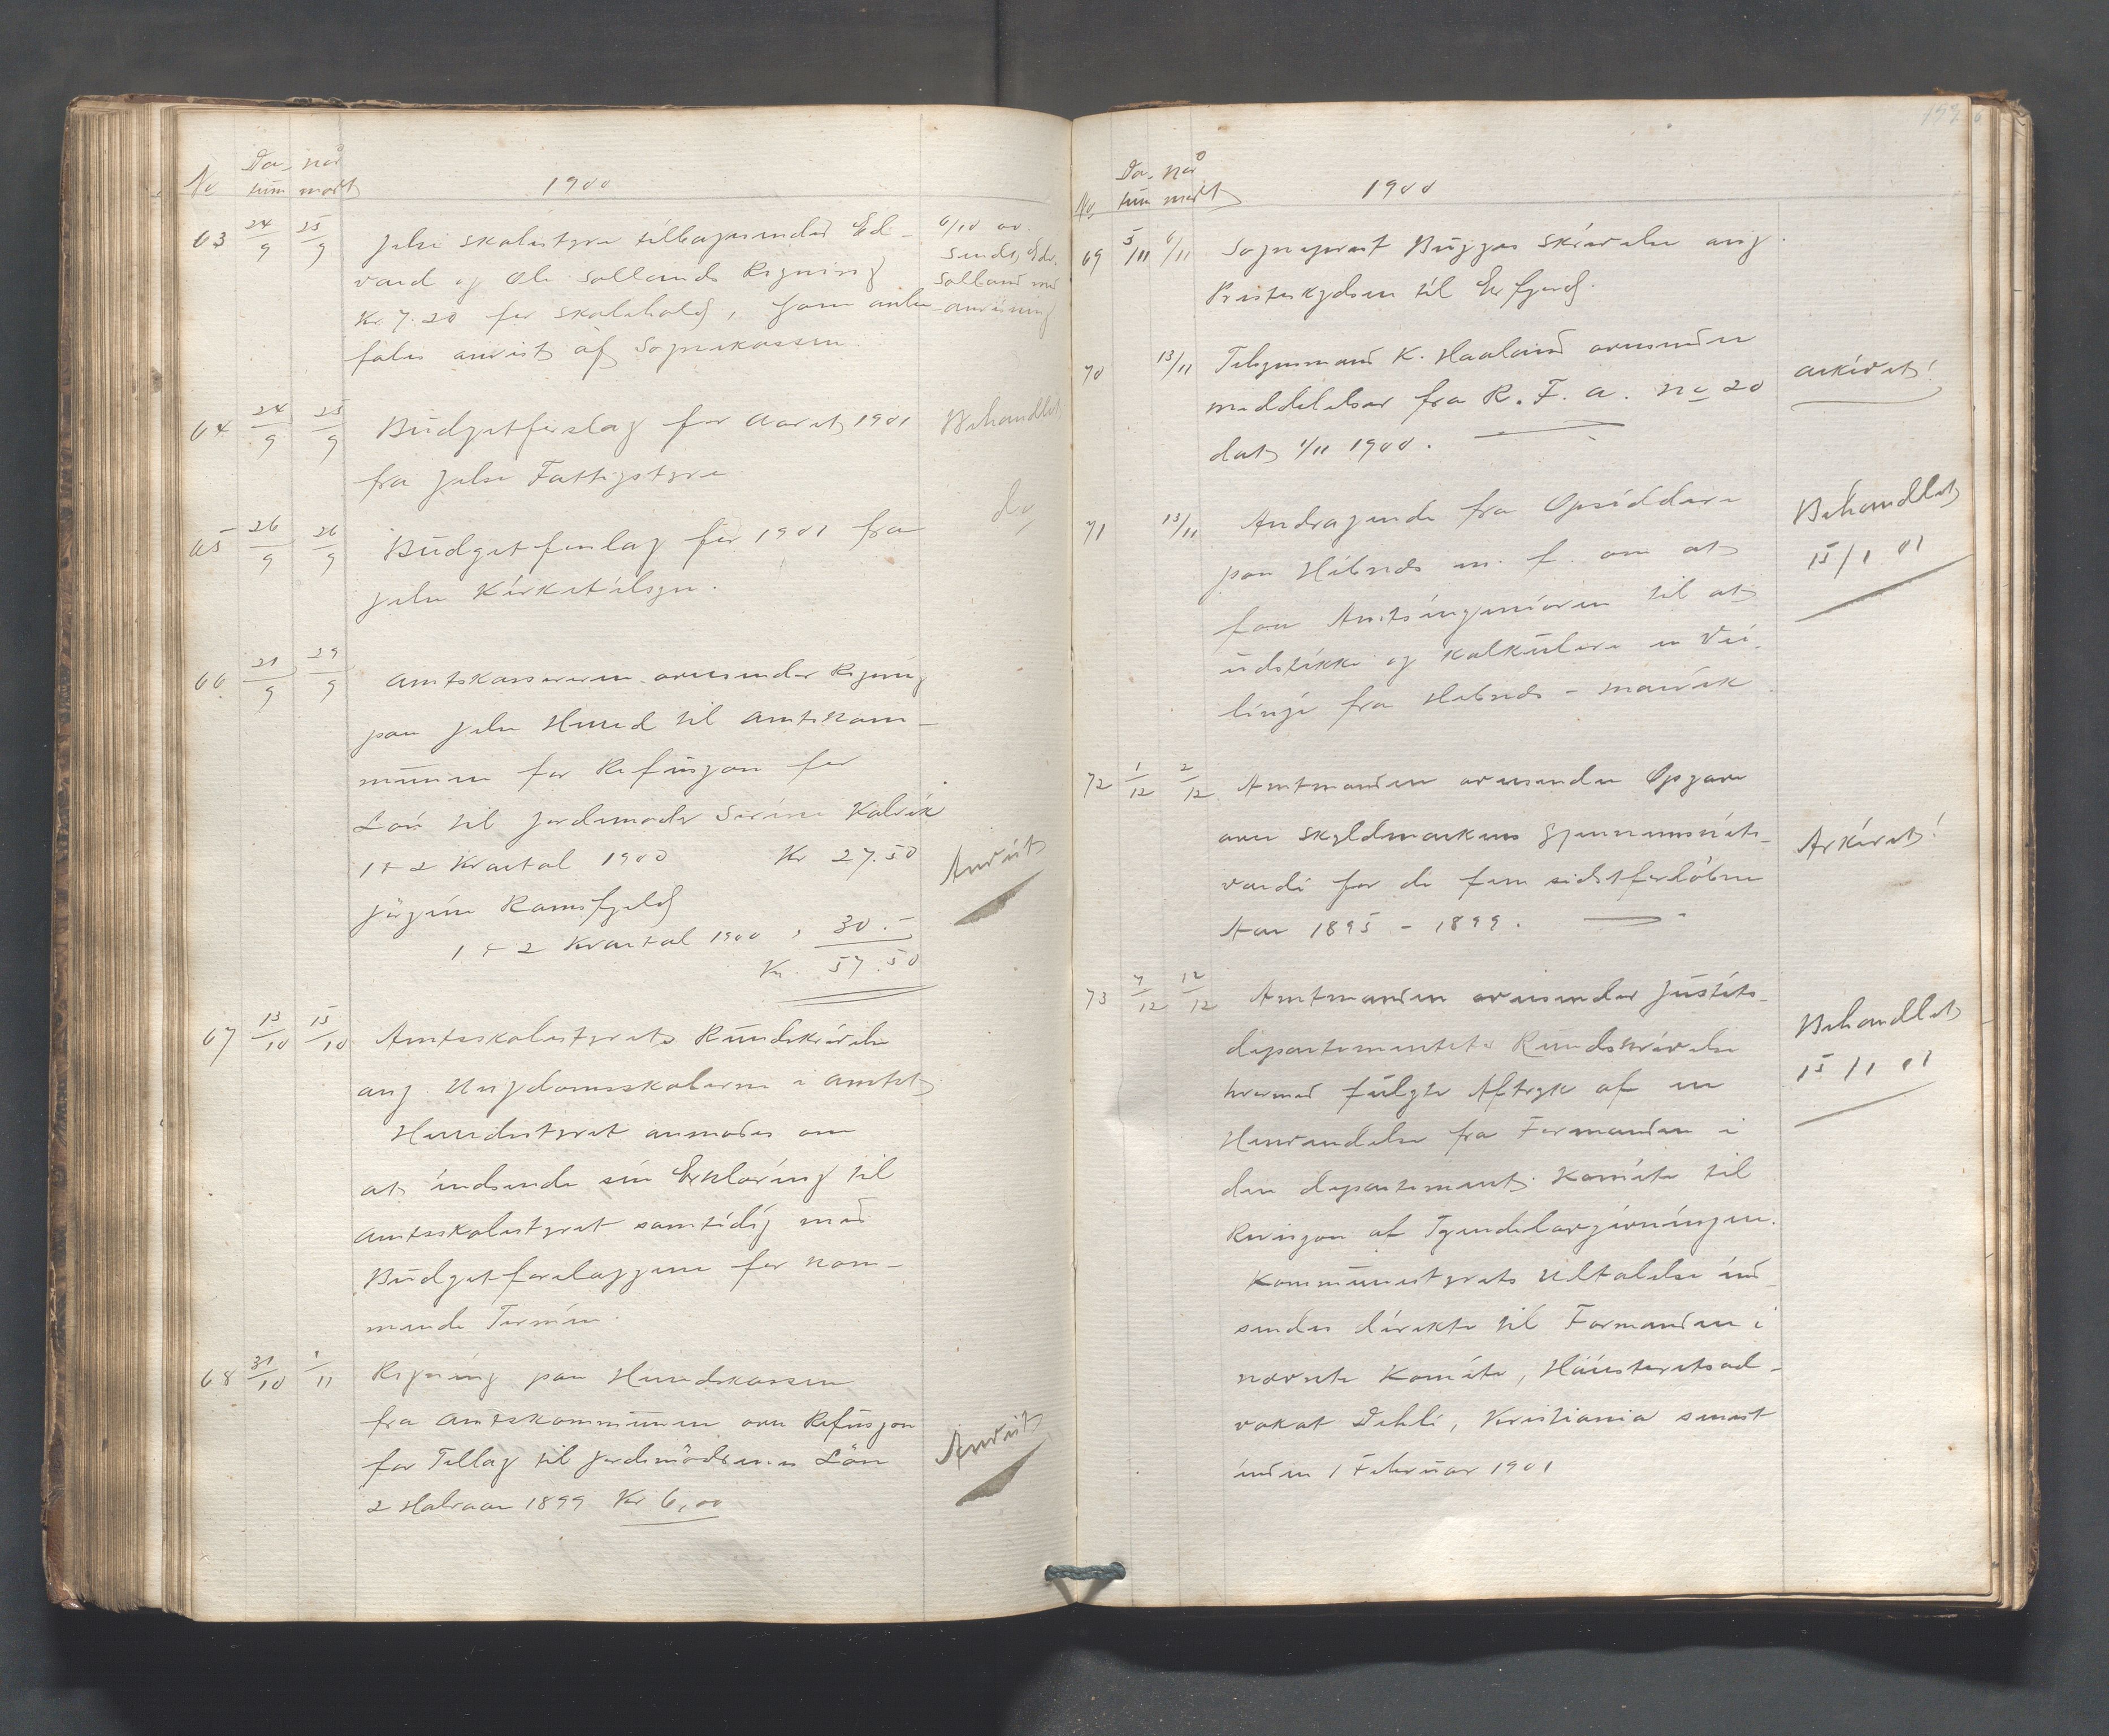 No Da-tum når mott 1900
63 24/9 25/9 Jelse skolestyre tilbagesender Ed-
vard og Ole Sollands Regning
Kr 7.20 for skolehold, som anbe-
fales anvist af Sognekassen.
6/10 ov.
sendt Edv.
Solland med
anvisning
64 24/9 25/9 Budgetforslag for Aaret 1901
fra Jelse Fattigstyre
Behandlet
65 26/9 26/9 Budgetforslag for 1901 fra
Jelse Kirketilsyn.
do
66. 21/9 29/9 Amtskassereren oversender Regning
paa Jelse Herred til Amtskom-
munen for Refusjon for
Løn til Jordemoder Serine Kalvik
1 & 2 Kvartal 1900 Kr 27.50
Jørgine Ramsfjeld
1 & 2 Kvartal 1900 " 30.-
Kr. 57.50
Anvist
67 13/10 15/10 Amtsskolestyrets Rundskrivelse
ang. Ungdomsskolerne i Amtet
Herredstyret anmodes om
at indsende sin Erklæring til
Amtsskolestyret samtidig med
Budgetforslaggene for kom-
mende Termin.
68 31/10 1/11 Regning paa Herredskassen
fra Amtskommunen over Refusjon
for Tillæg til Jordemødrenes Løn
2 Halvaar 1899 Kr 6,00
Anvist
No Da-tum når mott 1900
69 5/11 6/11 Sogneprest Bugges Skrivelse ang.
Presteskydsen til Erfjord.
70 13/11 Tilsynsmand K. Haaland oversender
meddelelser fra R. F. A. No 20
dat 1/11 1900.
arkivert!
71 13/11 Andragende fra Opsiddere
paa Hebnes m. f. om at
faa Amtsingeniøren til at
udstikke og kalkulere en Vei-
linje fra Hebnes -
Behandlet
15/1 01
72 1/12 2/12 Amtmanden oversender Opgave
over Skyldmarkens Gjennemsnits-
værdi for de fem sidstforløbne
Aar 1895 - 1899.
Arkivert!
73 7/12 12/12 Amtmanden oversender Justits-
departementets Rundskrivelse
hvormed fulgte Aftryk af en
Henvendelse fra Formanden i
den departement. Komite til
Revisjon af Tyendelovgivningen.
Kommunestyrets Udtalelse ind-
sendes direkte til Formanden i
nævnte Komite, Høiesteretsad-
vokat Dehli, Kristiania senest
inden 1 Februar 1901
Behandlet
15/1 01